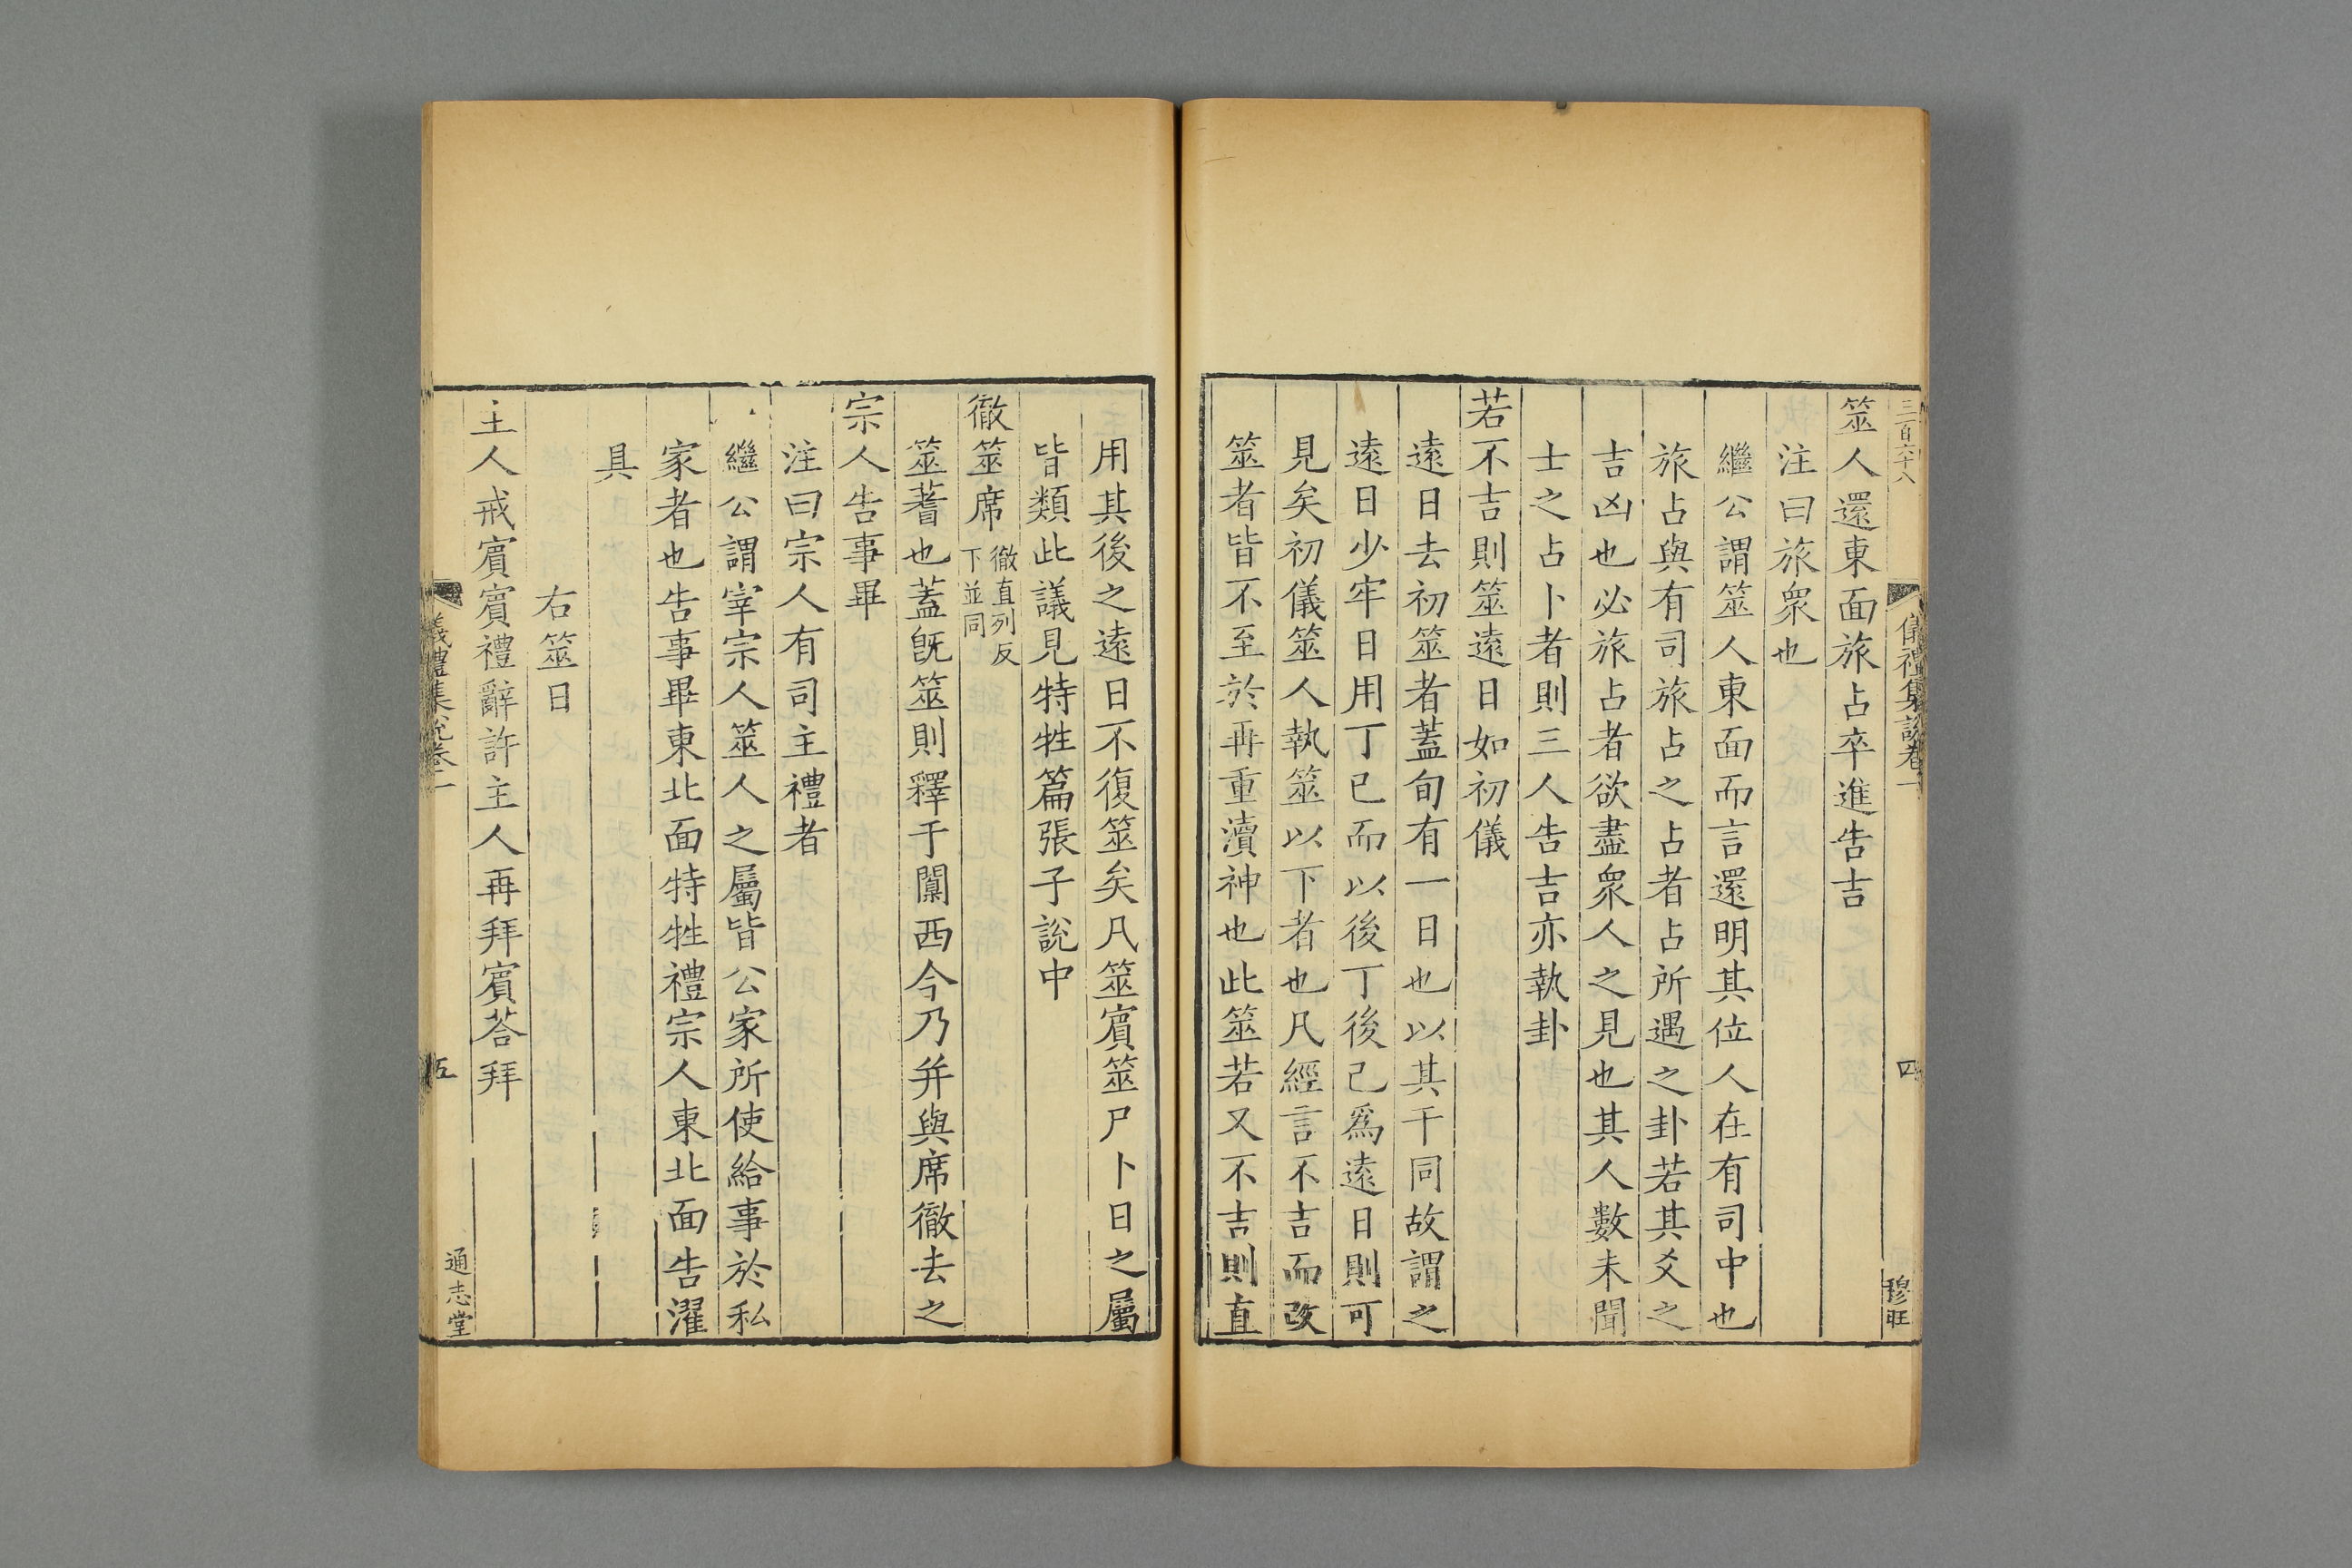 三百六十八
儀禮集說卷一
四
穆旺
筮人還東面旅占卒進告吉
注曰旅衆也
繼公謂筮人東面而言還明其位人在有司中也
旅占與有司旅占之占者占所遇之卦若其爻之
吉凶也必旅占者欲盡衆人之見也其人數未聞
士之占卜者則三人告吉亦執卦
若不吉則筮遠日如初儀
遠日去初筮者蓋旬有一日也以其干同故謂之
遠日少牢日用丁已而以後丁後己爲遠日則可
見矣初儀筮人執筮以下者也凡經言不吉而改
筮者皆不至於再重瀆神也此筮若又不吉則直
用其後之遠日不復筮矣凡筮賔筮尸卜日之屬
皆類此議見特牲篇張子說中
徹筮席
徹直列反
下並同
筮蓍也蓋旣筮則釋于闑西今乃并與席徹去之
宗人告事畢
注曰宗人有司主禮者
繼公謂宰宗人筮人之屬皆公家所使給事於私
家者也告事畢東北面特牲禮宗人東北面告濯
具
右筮日
主人戒賔賔禮辭許主人再拜賔荅拜
儀禮集說卷一
五
通志堂